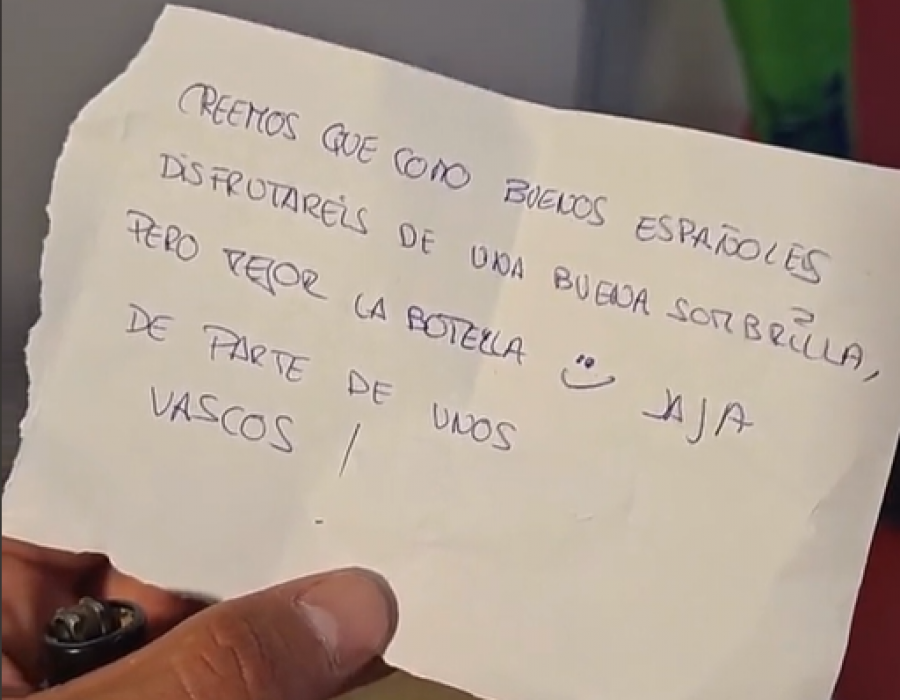 CREEMOS QUE COMO BUENOS ESPAÑOLES
DISFRUTAREIS DE UNA BUENA SOMBRILLA,
PERO MEJOR LA BOTELLA :) JAJA
DE PARTE DE UNOS
VASCOS /